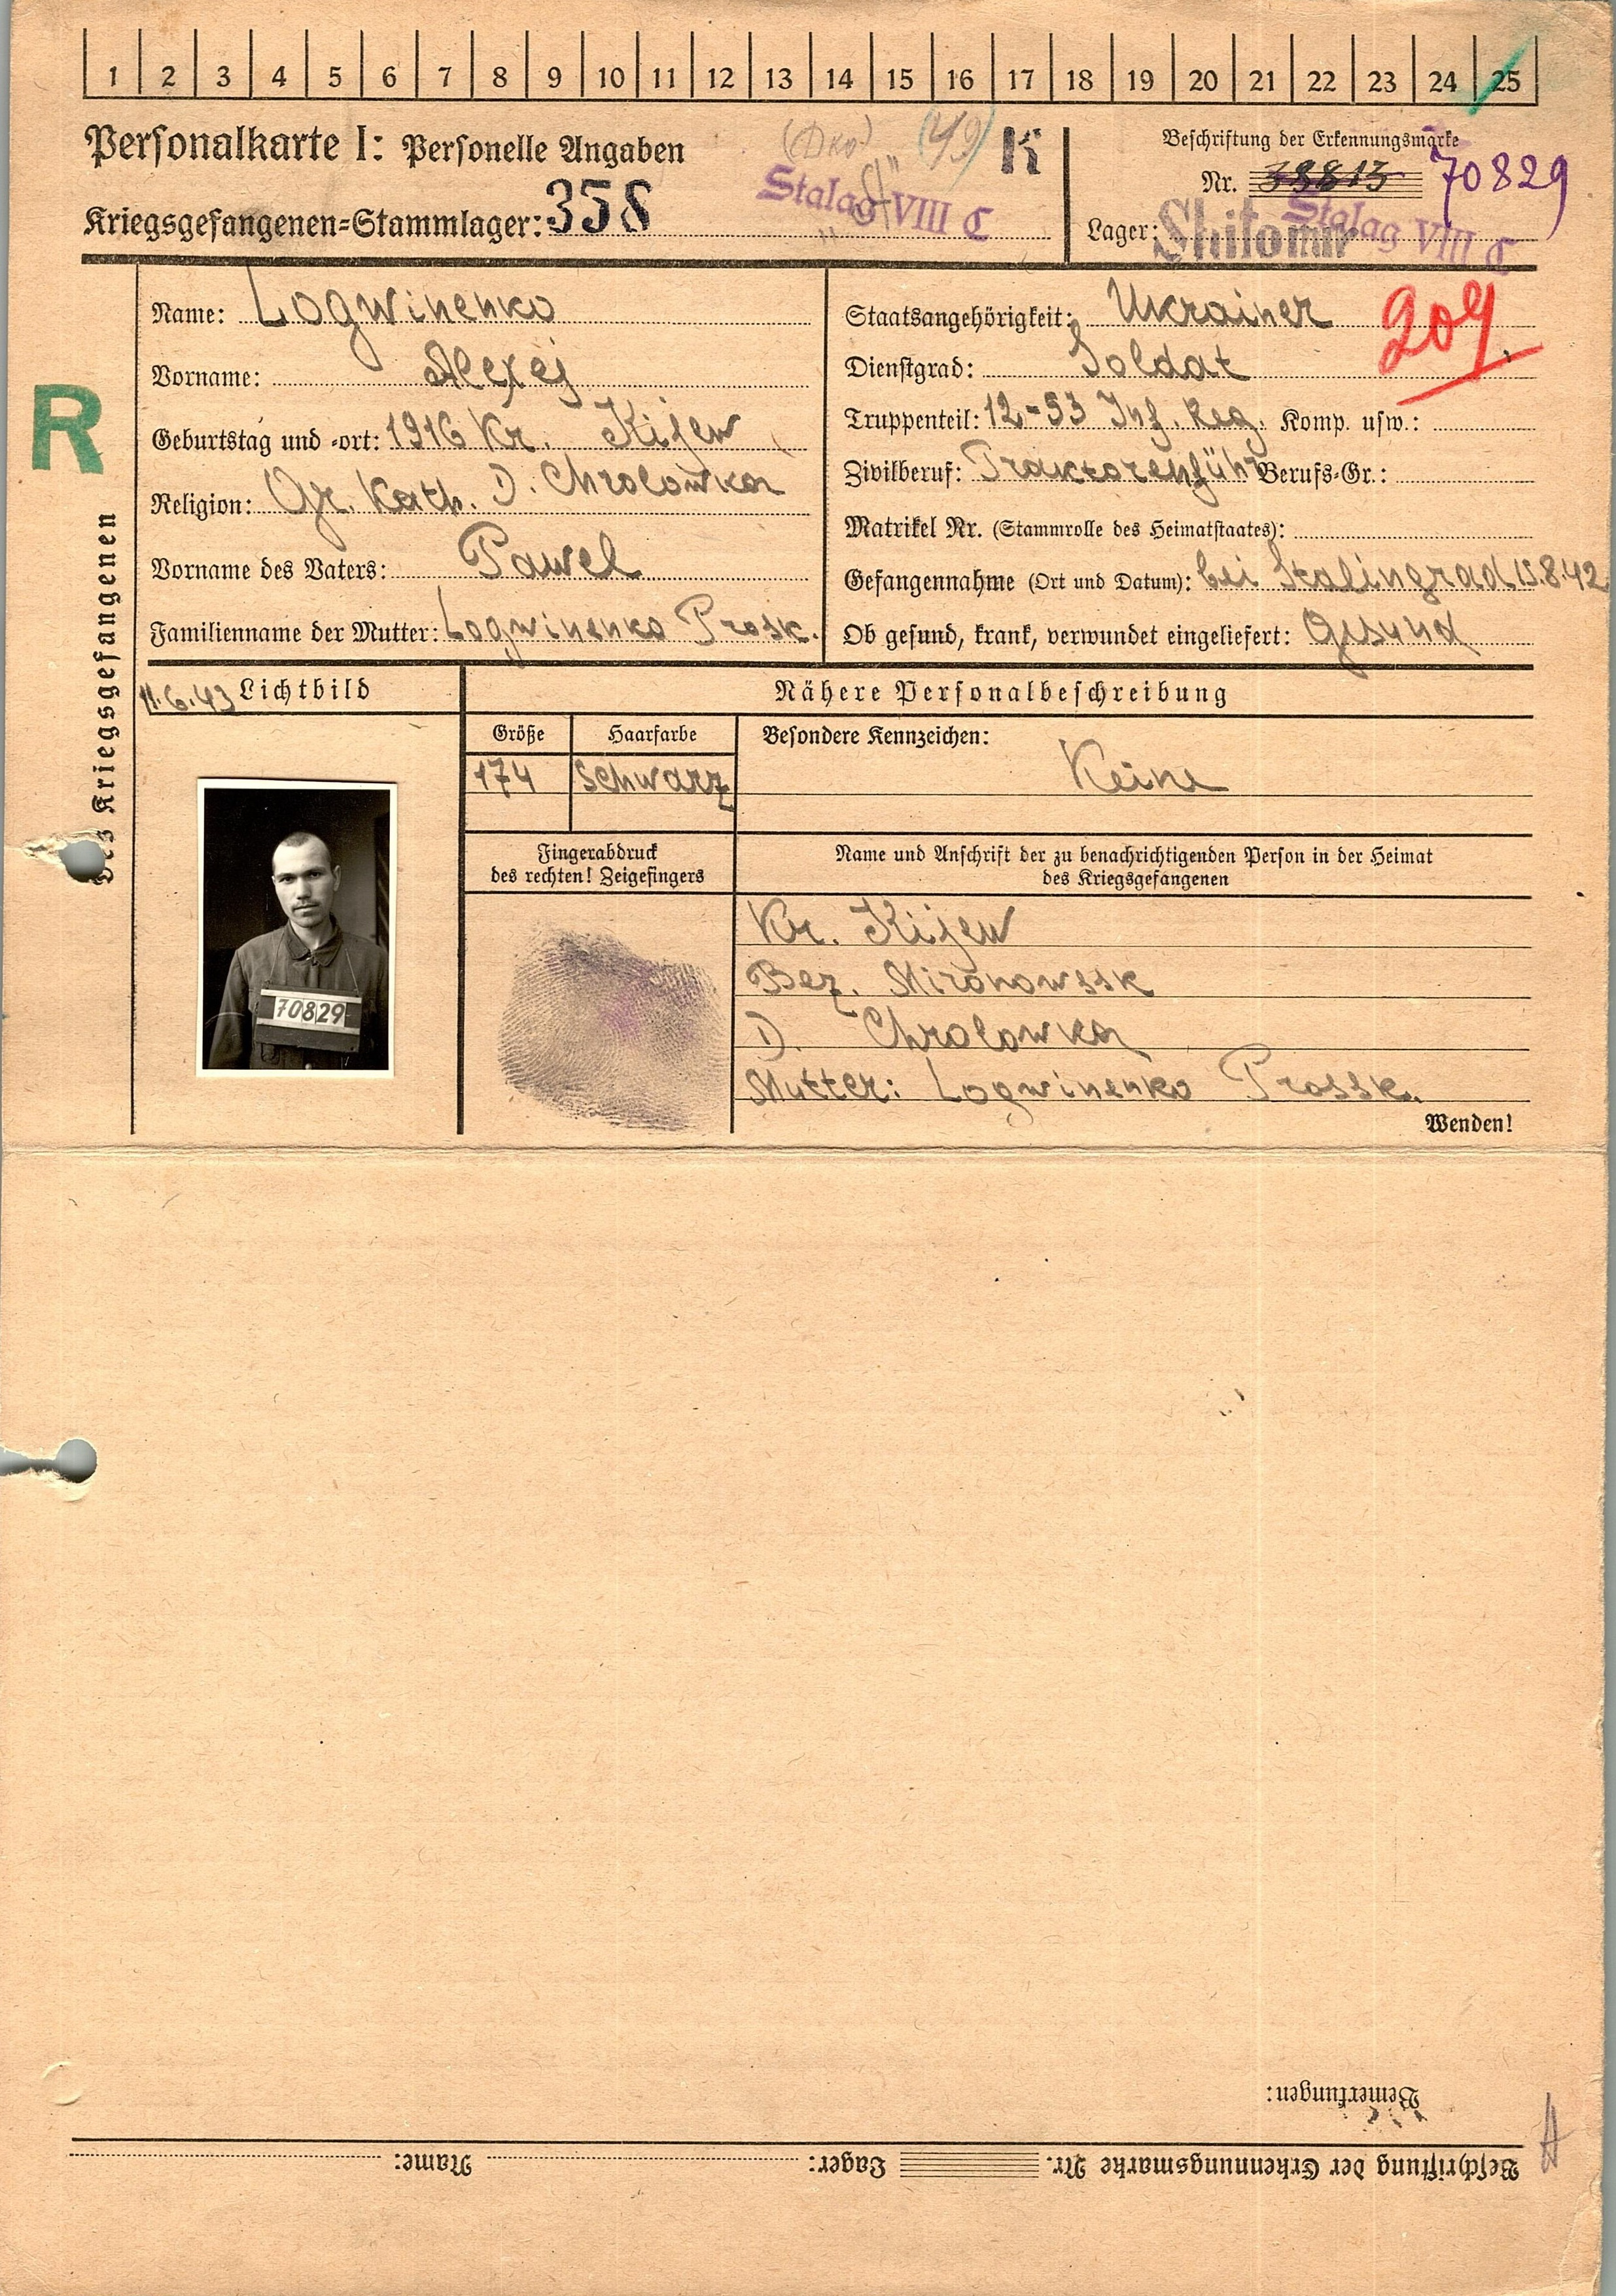 1 2 3 4 5 6 7 8 9 10 11 12 13 14 15 16 17 18 19 20 21 22 23 24 25
Personalkarte I: Personelle Angaben
49
K
Beschriftung der Erkennungsmarke
Nr. 70829
Kriegsgefangenen=Stammlager: 358
Stalag VIII C
Lager: Shitomir Stalag VIII C
R
des Kriegsgefangenen
Name: Logwinenko
Vorname: Alexej
Geburtstag und -ort: 1916 Kr. Kijew
Religion: Gr. Kath. D. Chrolowka
Vorname des Vaters: Pawel
Familienname der Mutter: Logwinenko Prosk.
Staatsangehörigkeit: Ukrainer
209
Dienstgrad: Soldat
Truppenteil: 12-53 Inf. Reg. Komp. usw.:
Zivilberuf: Traktorenführ Berufs=Gr.:
Matrikel Nr. (Stammrolle des Heimatstaates):
Gefangennahme (Ort und Datum): bei Stalingrad 15.8.42
Ob gesund, krank, verwundet eingeliefert: Gesund
11.6.43 Lichtbild
70829
Nähere Personalbeschreibung
Größe Haarfarbe Besondere Kennzeichen:
174 schwarz Keine
Fingerabdruck
des rechten! Zeigefingers
Name und Anschrift der zu benachrichtigenden Person in der Heimat
des Kriegsgefangenen
Kr. Kijew
Bez. Mironowssk
D. Chrolowka
Mutter: Logwinenko Prossk.
Wenden!
Bemerkungen:
Beschriftung der Erkennungsmarke Nr. Lager: Name: